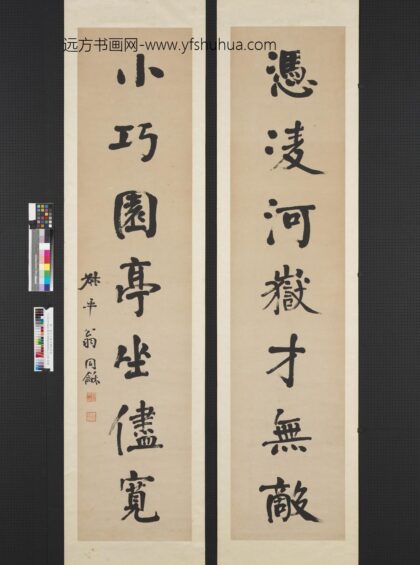 远方书画网-www.yfshuhua.com
憑凌河嶽才無敵
小巧園亭坐儘寬
叔平翁同龢